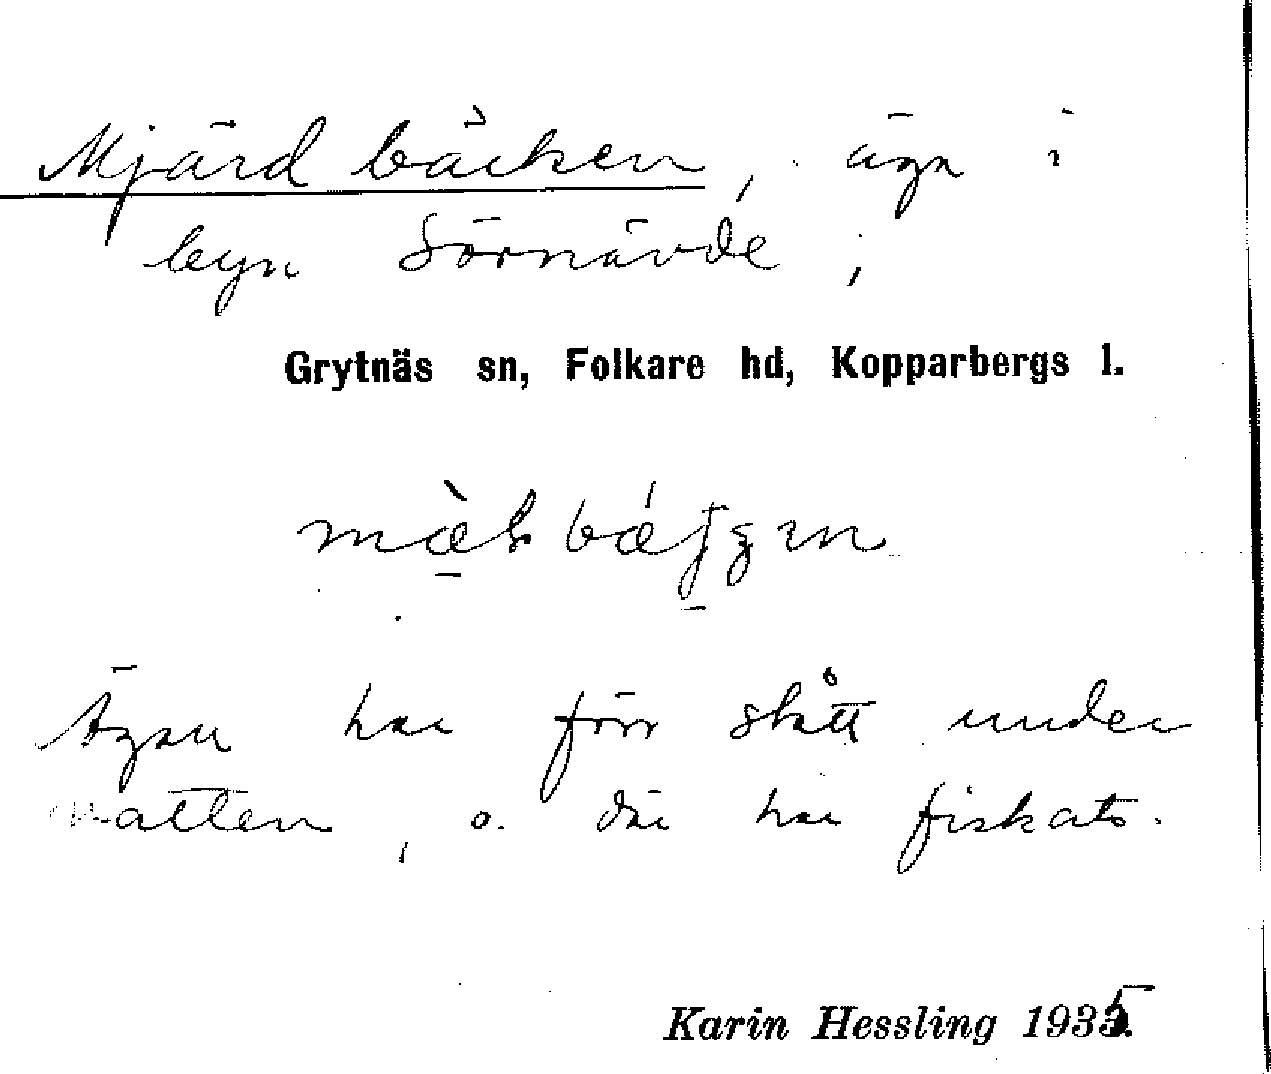 Mjärdbäcken, äga i
byn Sörnävde,
Grytnäs sn, Folkare hd, Kopparbergs l.
Ägan har förr stått under
vatten, o. där har fiskats.
Karin Hessling 1935.